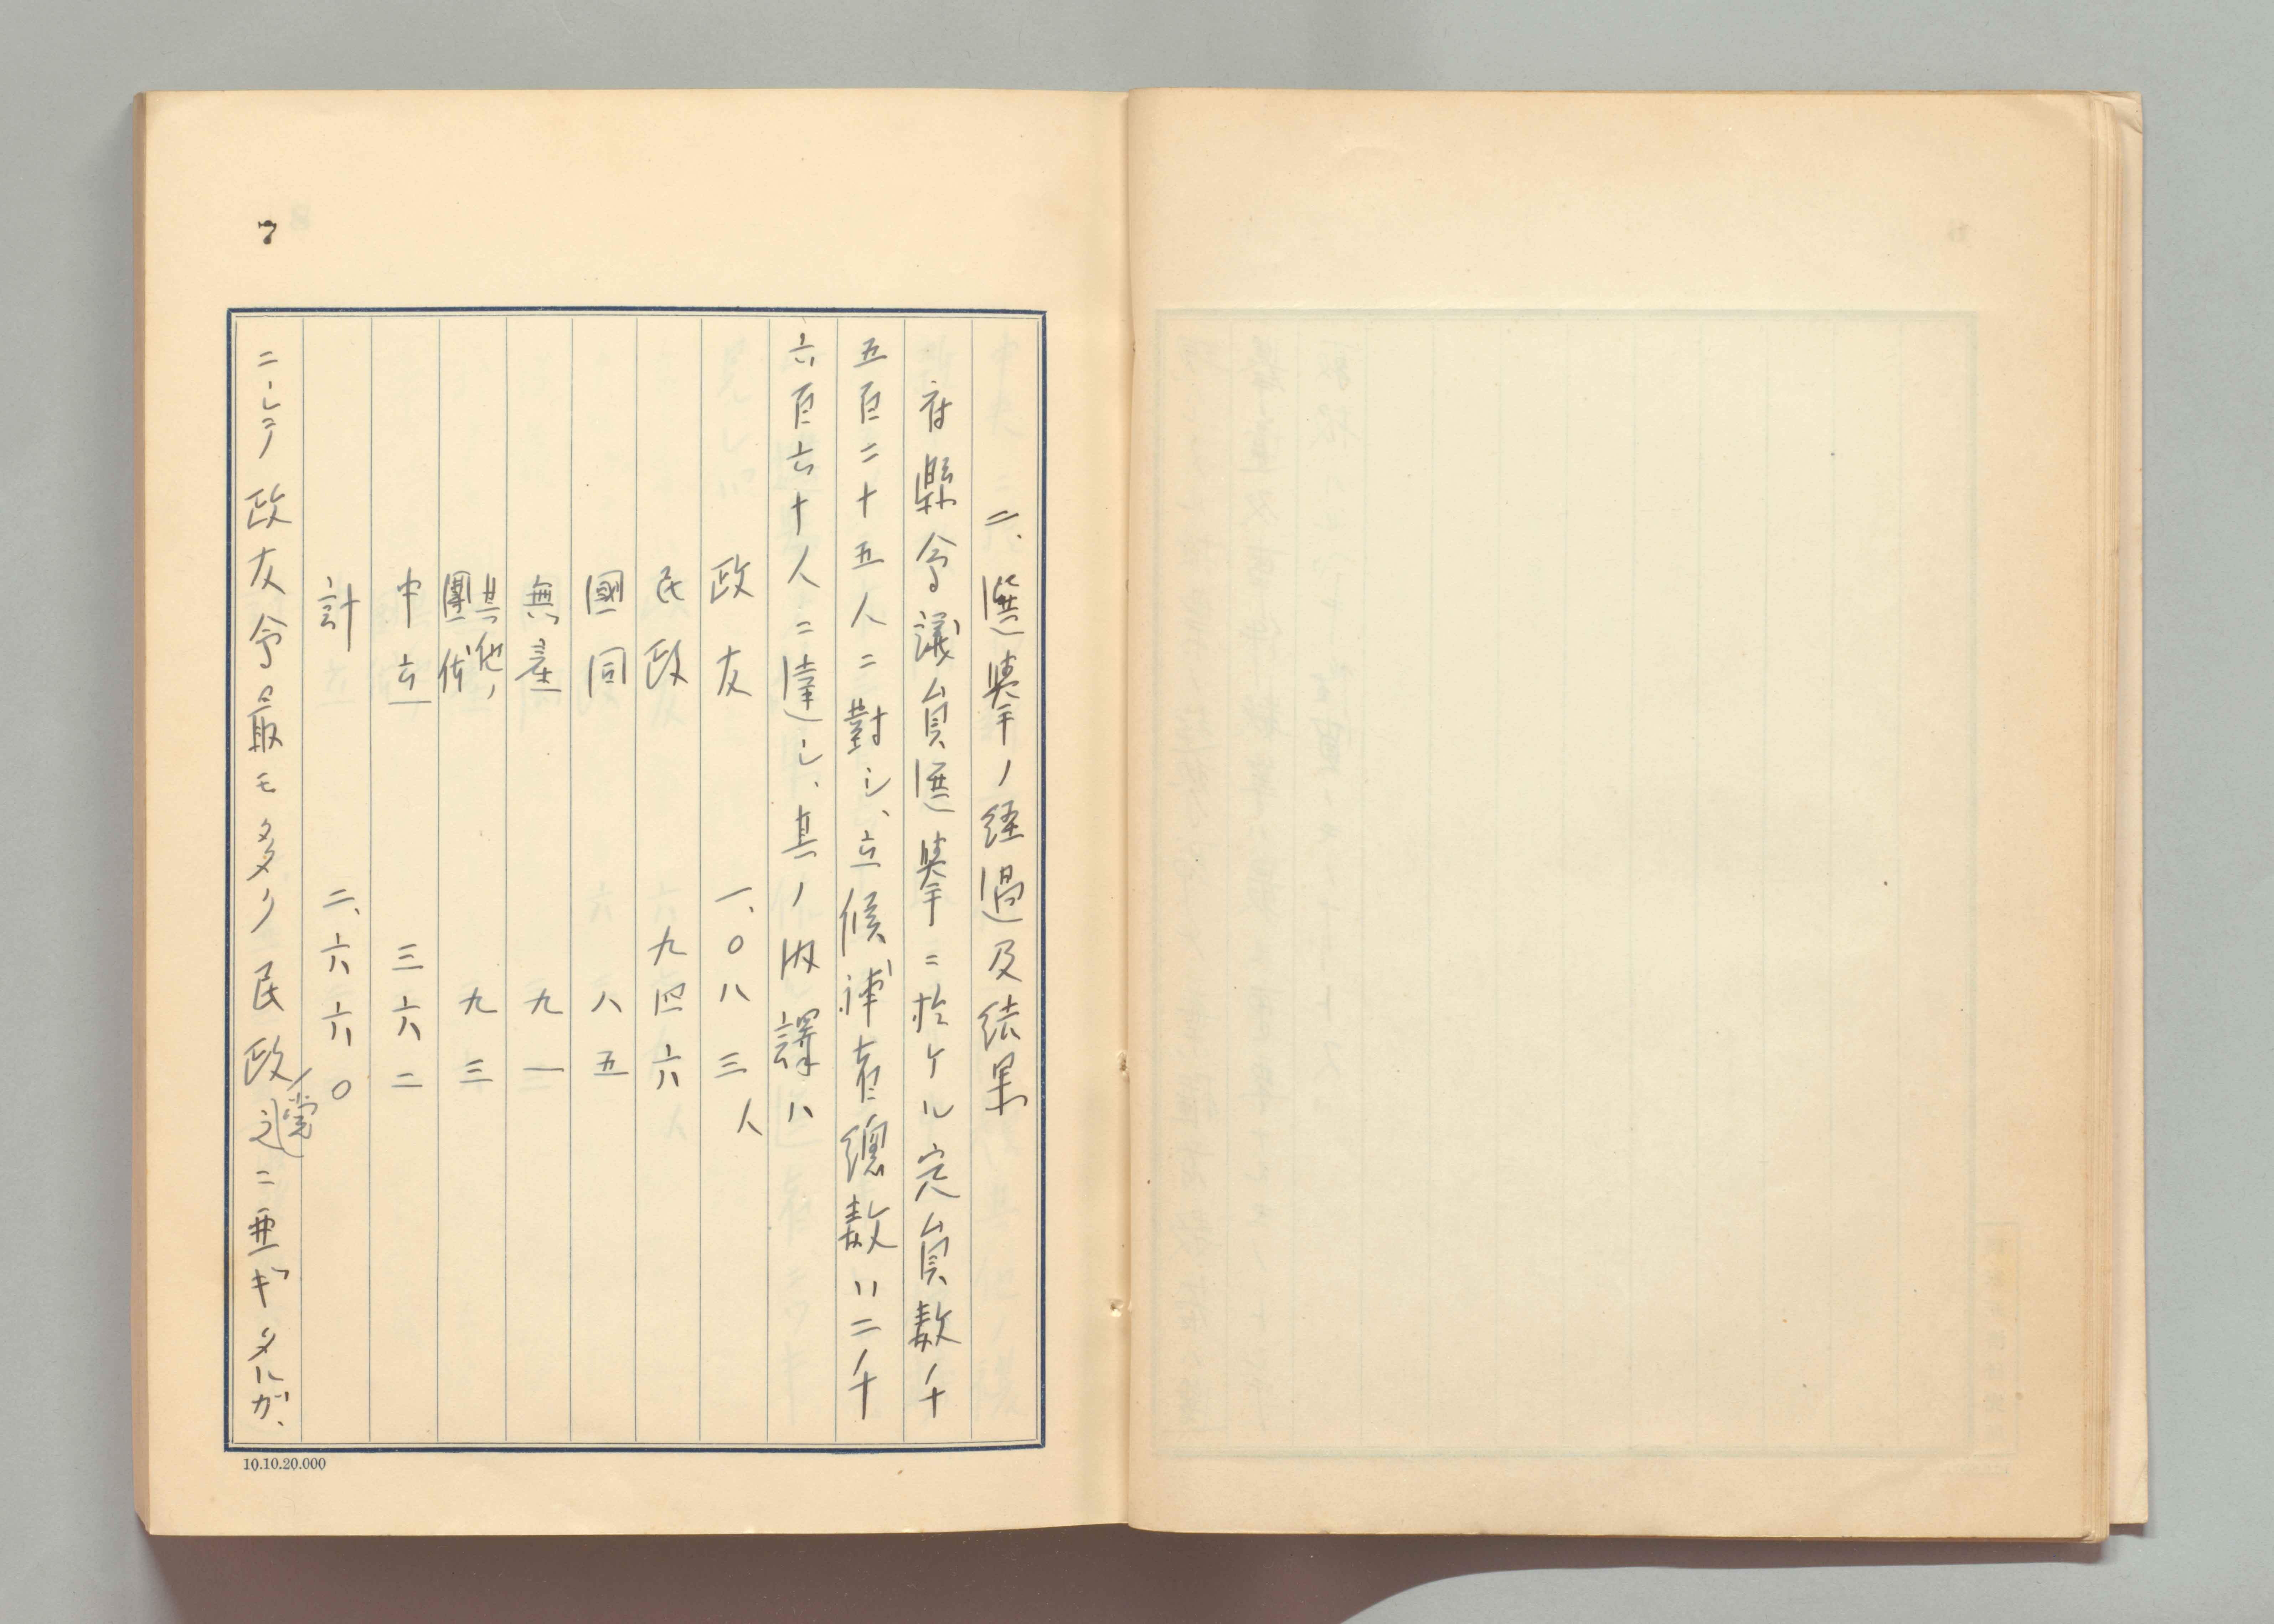 7
二、選擧ノ経過及結果
府縣会議員選擧ニ於ケル定員数千
五百二十五人ニ對シ、立候補者總数ハ二千
六百六十人ニ達シ、其ノ内譯ハ
政友 一、〇八三人
民政 九四六
國同 八五
無産 九一
其他ノ團体 九三
中立 三六二
計 二、六六〇
ニシテ政友会最モ多ク民政党之ニ亜ギタルガ、
10.10.20.000